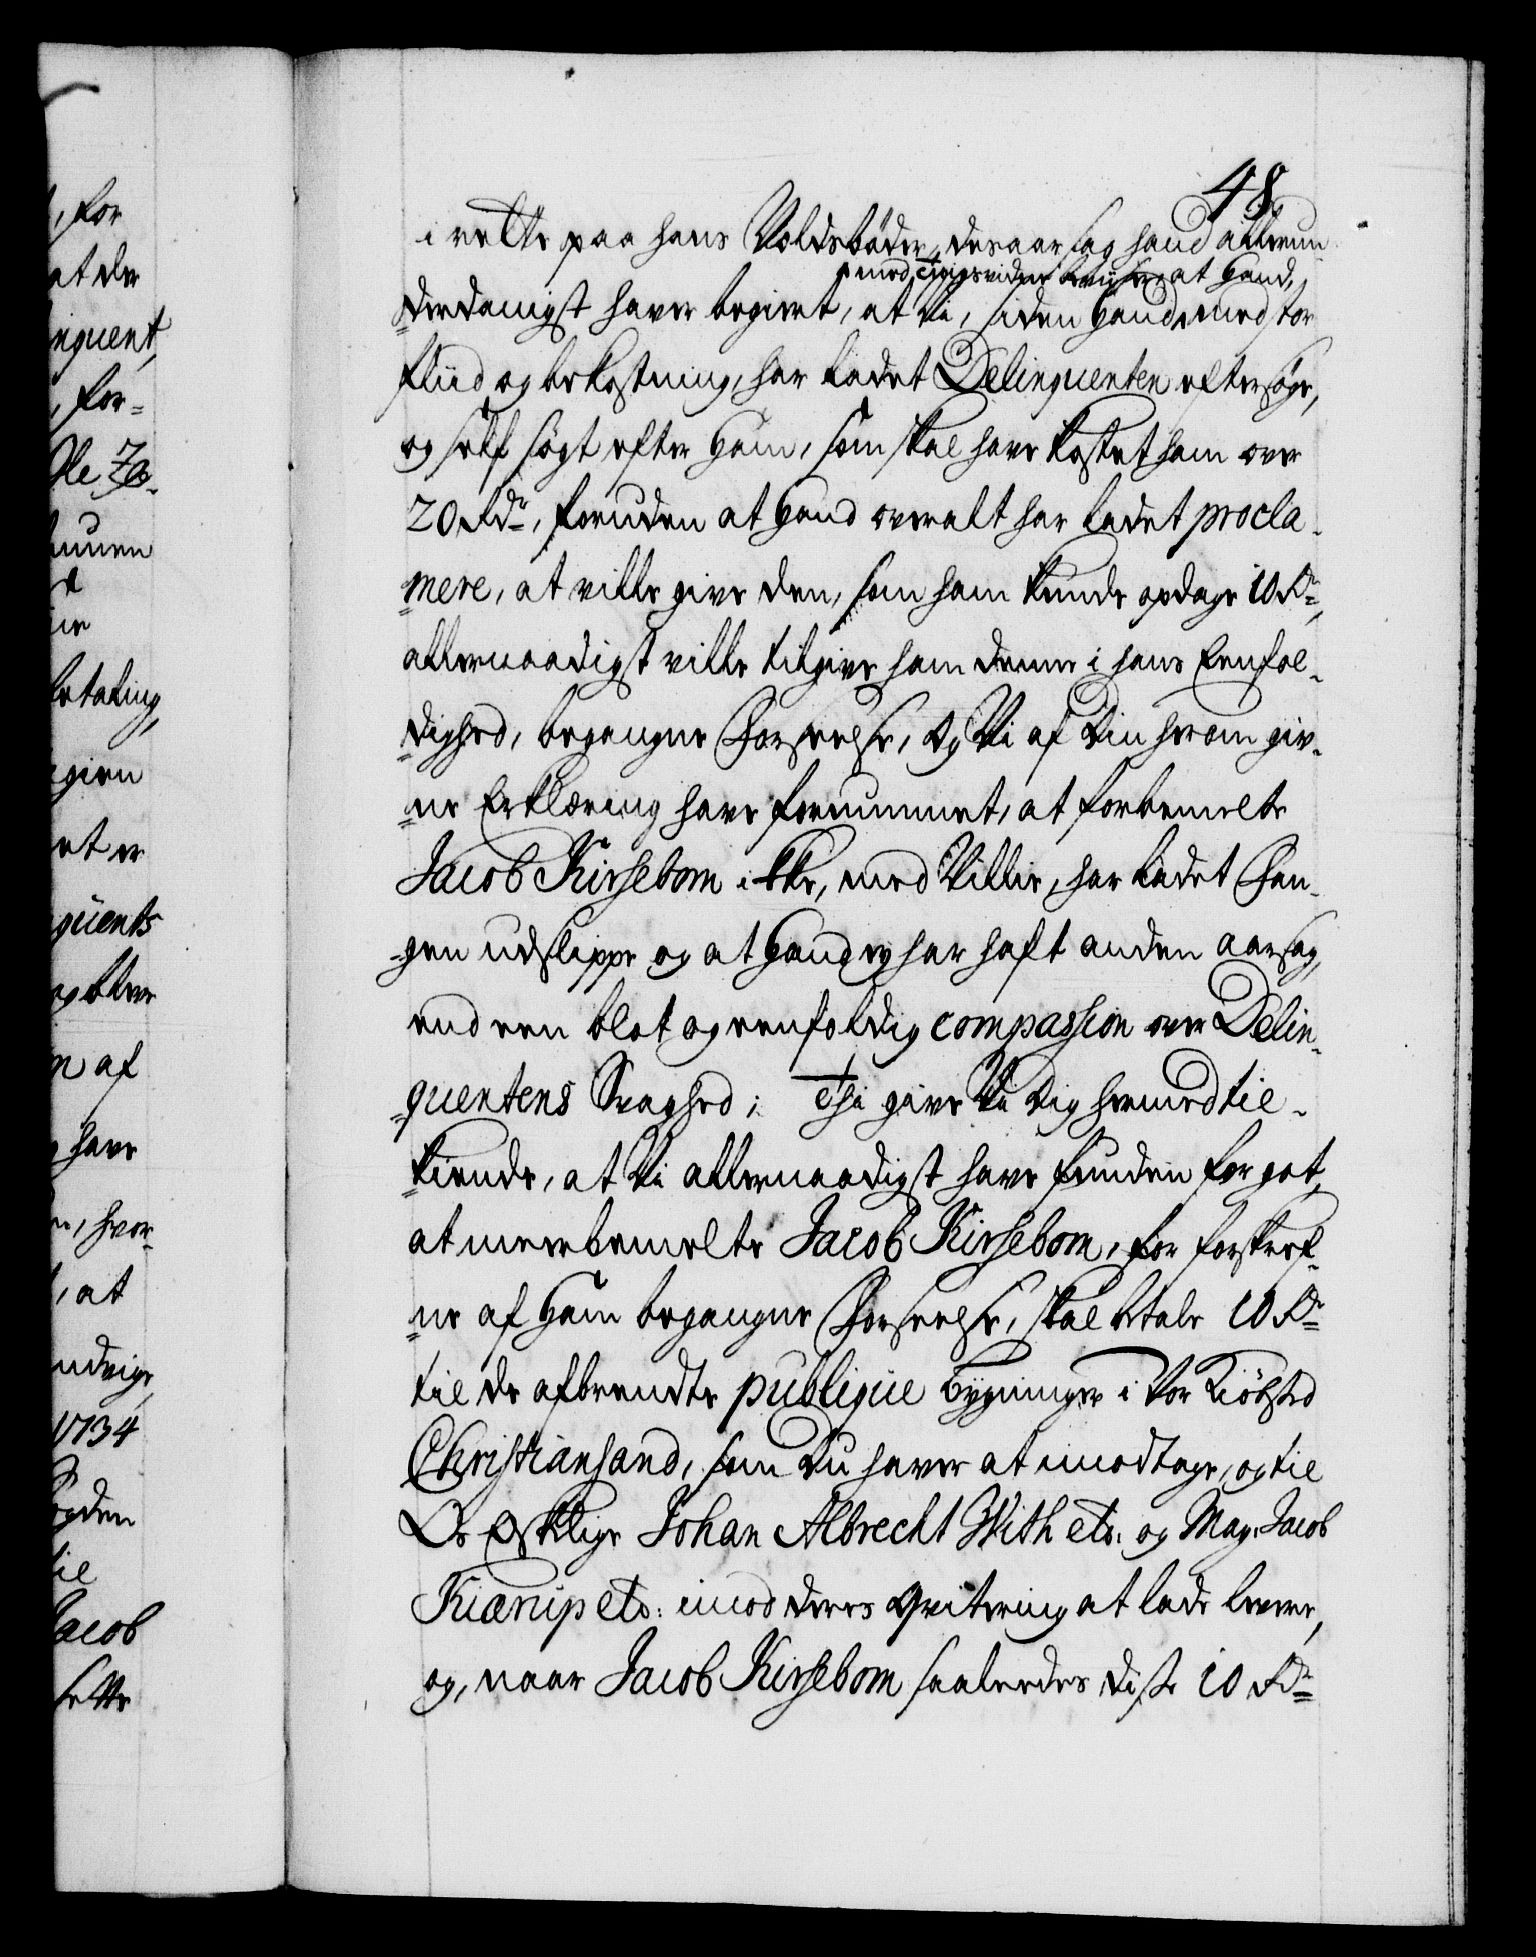 48
i rette paa hans Voldsbøder, desaarsag hand allerun-
med tingsvidner beviser, at hand,
derdanigst haver begieret, at Vi, siden hand med stor
fliid og bekostning, har ladet Delinquenten eftersøge,
og self søgt efter ham, som skal have kostet ham over
20 Rdr, foruden at hand overalt har ladet procla-
mere, at ville give den, som ham kunde opdage 10 Rdr,
allernaadigst ville tilgive ham denne i hans Eenfol-
dighed, begangne Forseelse, Og Vi af Din herom giv-
ne Erklæring have fornummet, at forbemelte
Jacob Kirsebom ikke, med Villie, har ladet Fan-
gen udslippe og at hand ey har haft anden aarsag,
end een blot og eenfoldig compassion over Delin-
quentens Svaghed; Thi give Vi Dig hermed til-
kiende, at Vi allernaadigst have funden for got,
at meerbemelte Jacob Kirsebom, for forskref-
ne af ham begangne Forseelse, skal betale 10 Rdr
til de afbrendte publique bygninger i Vor Kiøbsted
Christiansand, som Du haver at imodtage, og til
Os Elskelige Johan Albrecht With etc: og Mag. Jacob
Kiærup etc: imod deres qvitering at lade levere,
og, naar Jacob Kirsebom saaledes disse 10 Rdr
, for
at de
nquent,
, for-
Ole
ie
betaling,
gien
et er
quents
og blev
n af
have
, hvor-
, at
udvige,
1734
til
Jacob
sette